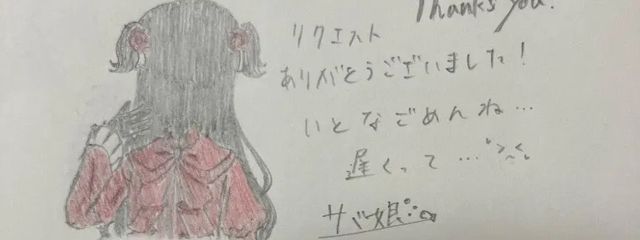 Thanks you!
リクエスト
ありがとうございました!
いとなごめんね…
遅くって…
サバ娘